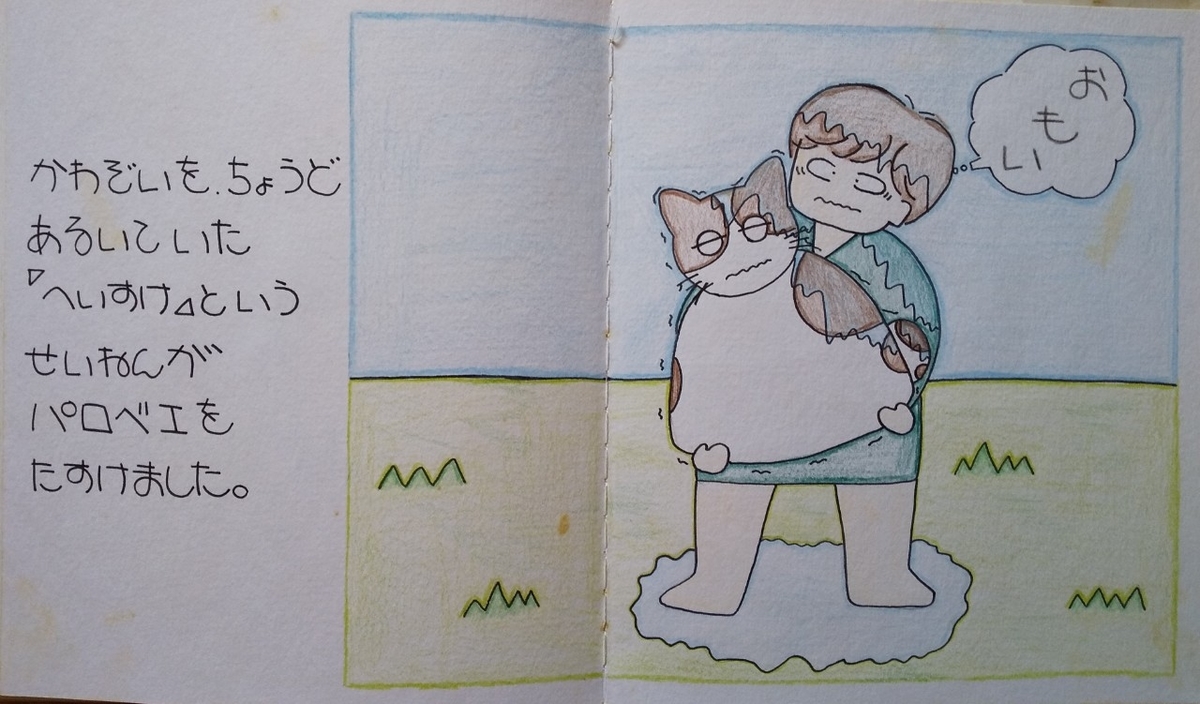 かわぞいを、ちょうど
あるいていた
『へいすけ』という
せいねんが
パロベエを
たすけました。
おもい